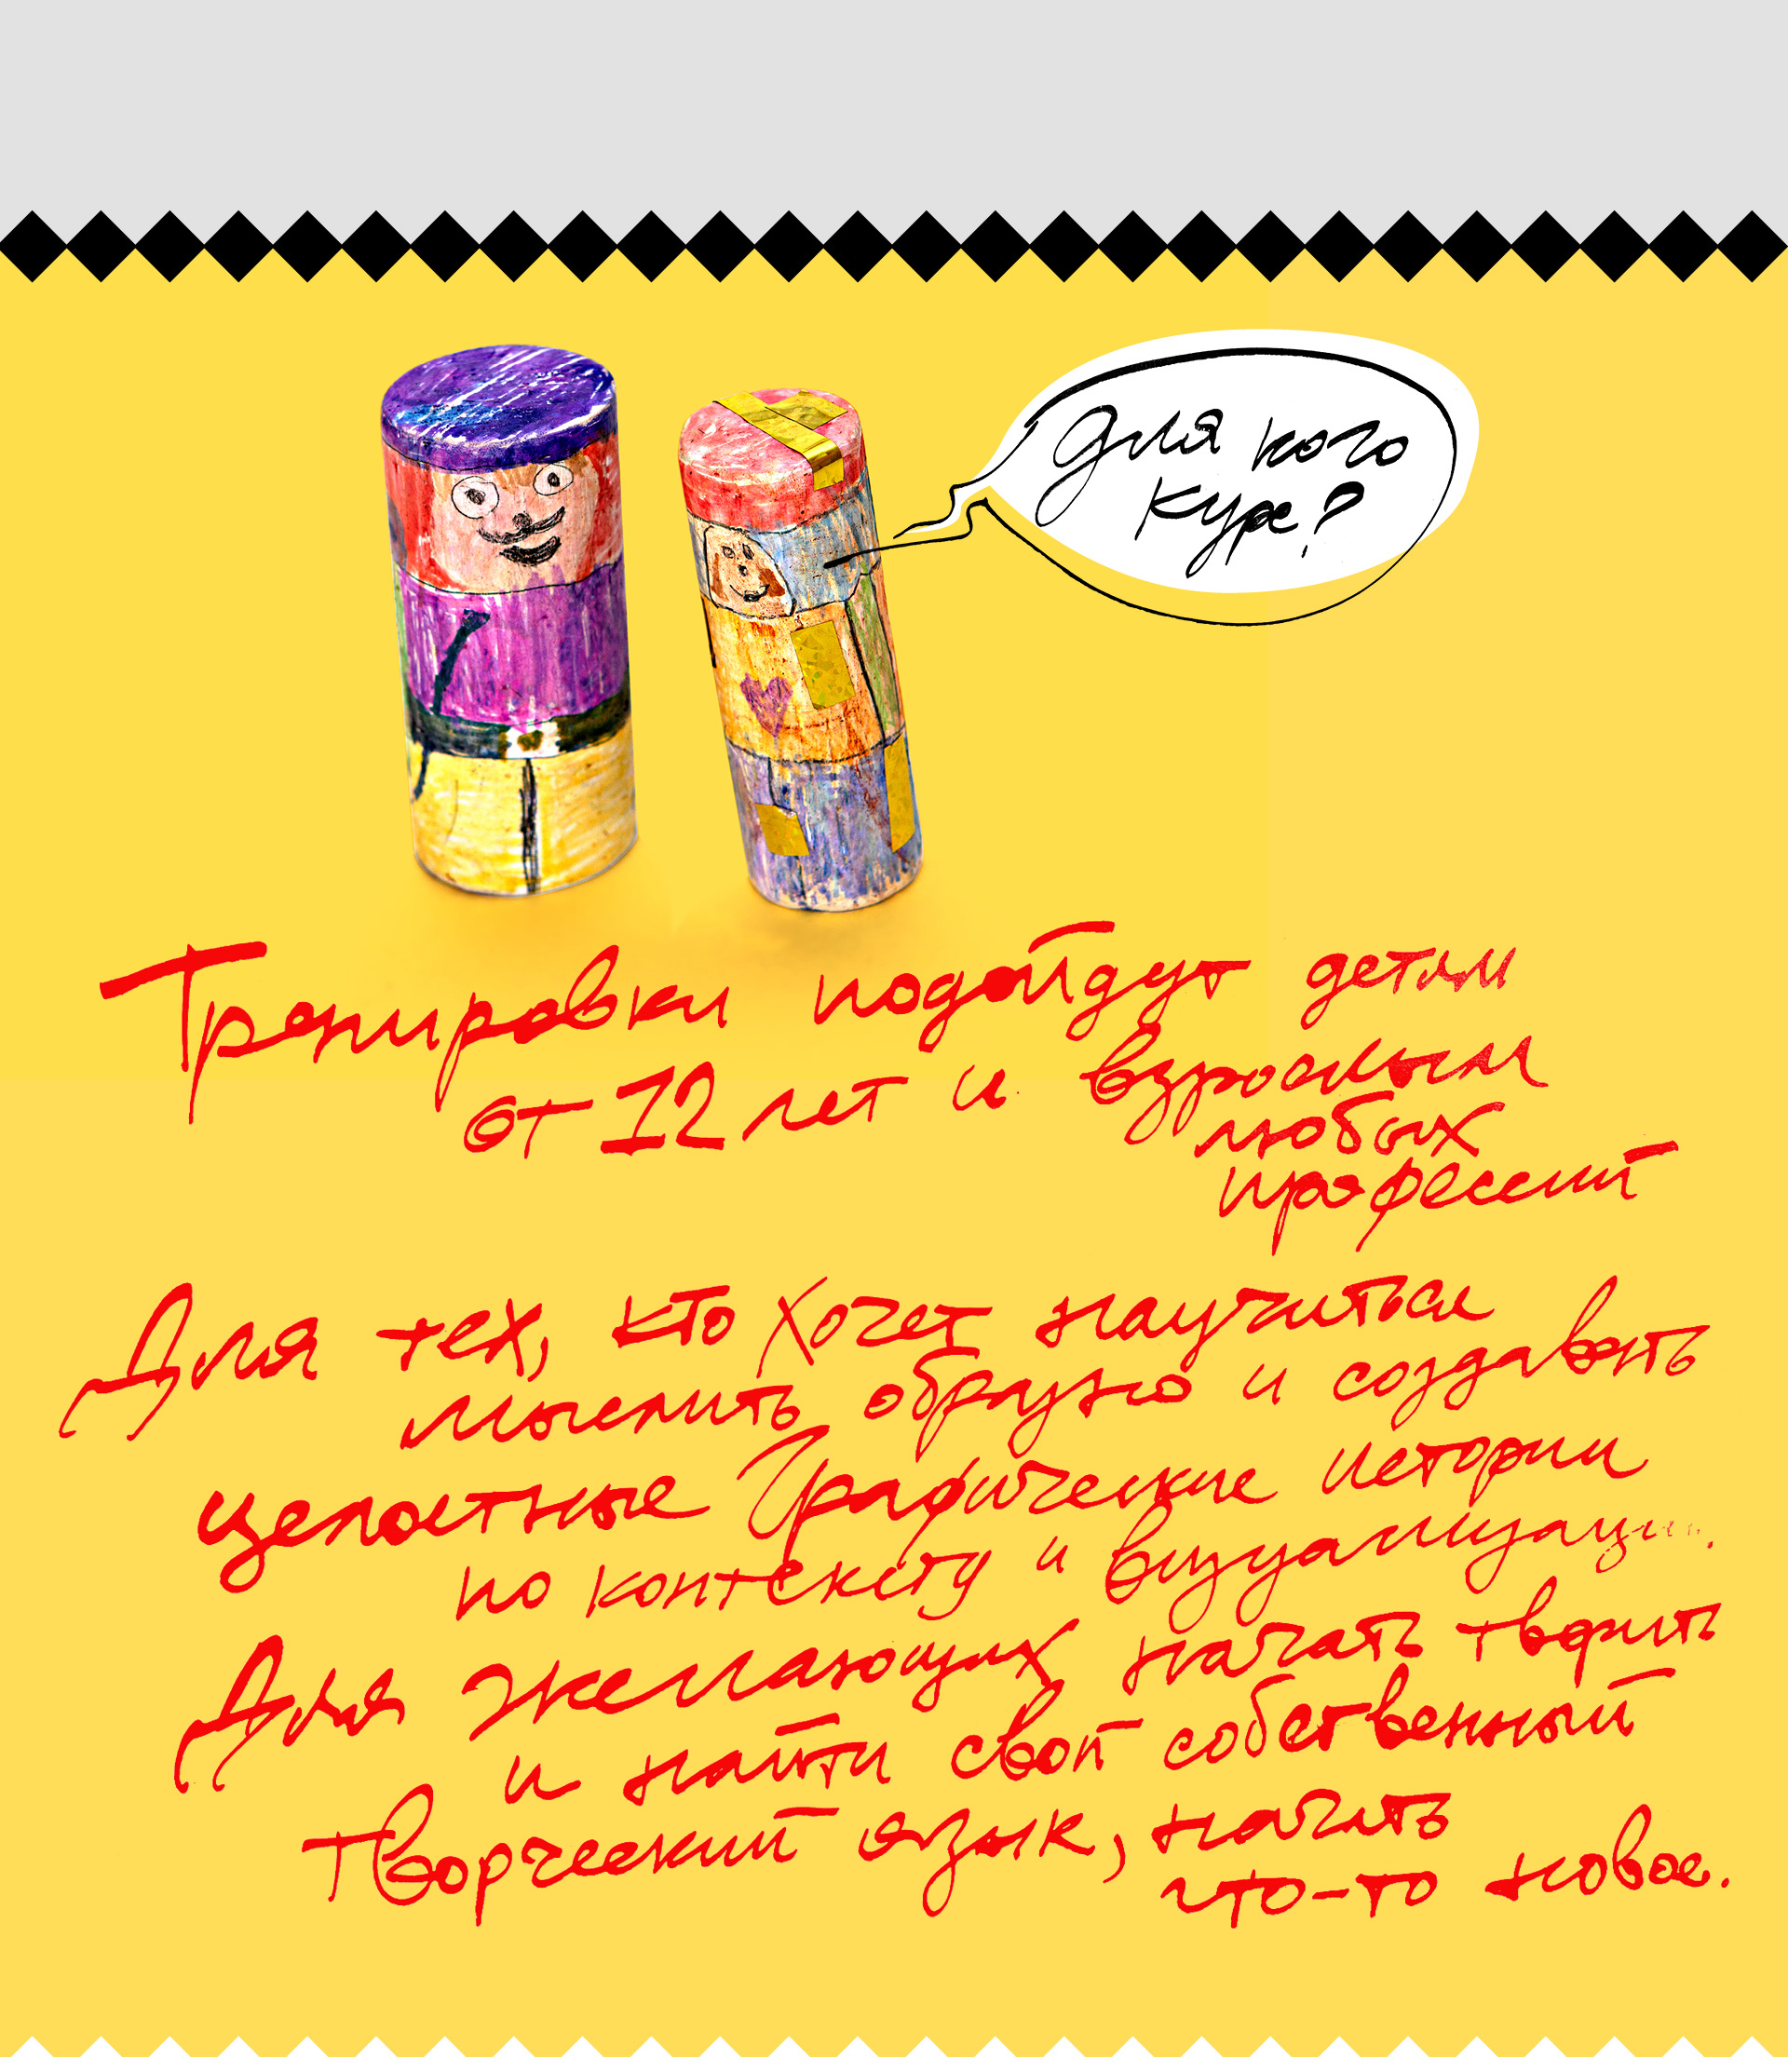 Для кого
курс?
Тренировки подойдут детям
от 12 лет и взрослым
любых
профессий
Для тех, кто хочет научиться
мыслить образно и создавать
целостные Графические истории
по контексту и визуализации.
Для желающих начать творить
и найти свой собственный
творческий язык, начать
что-то новое.